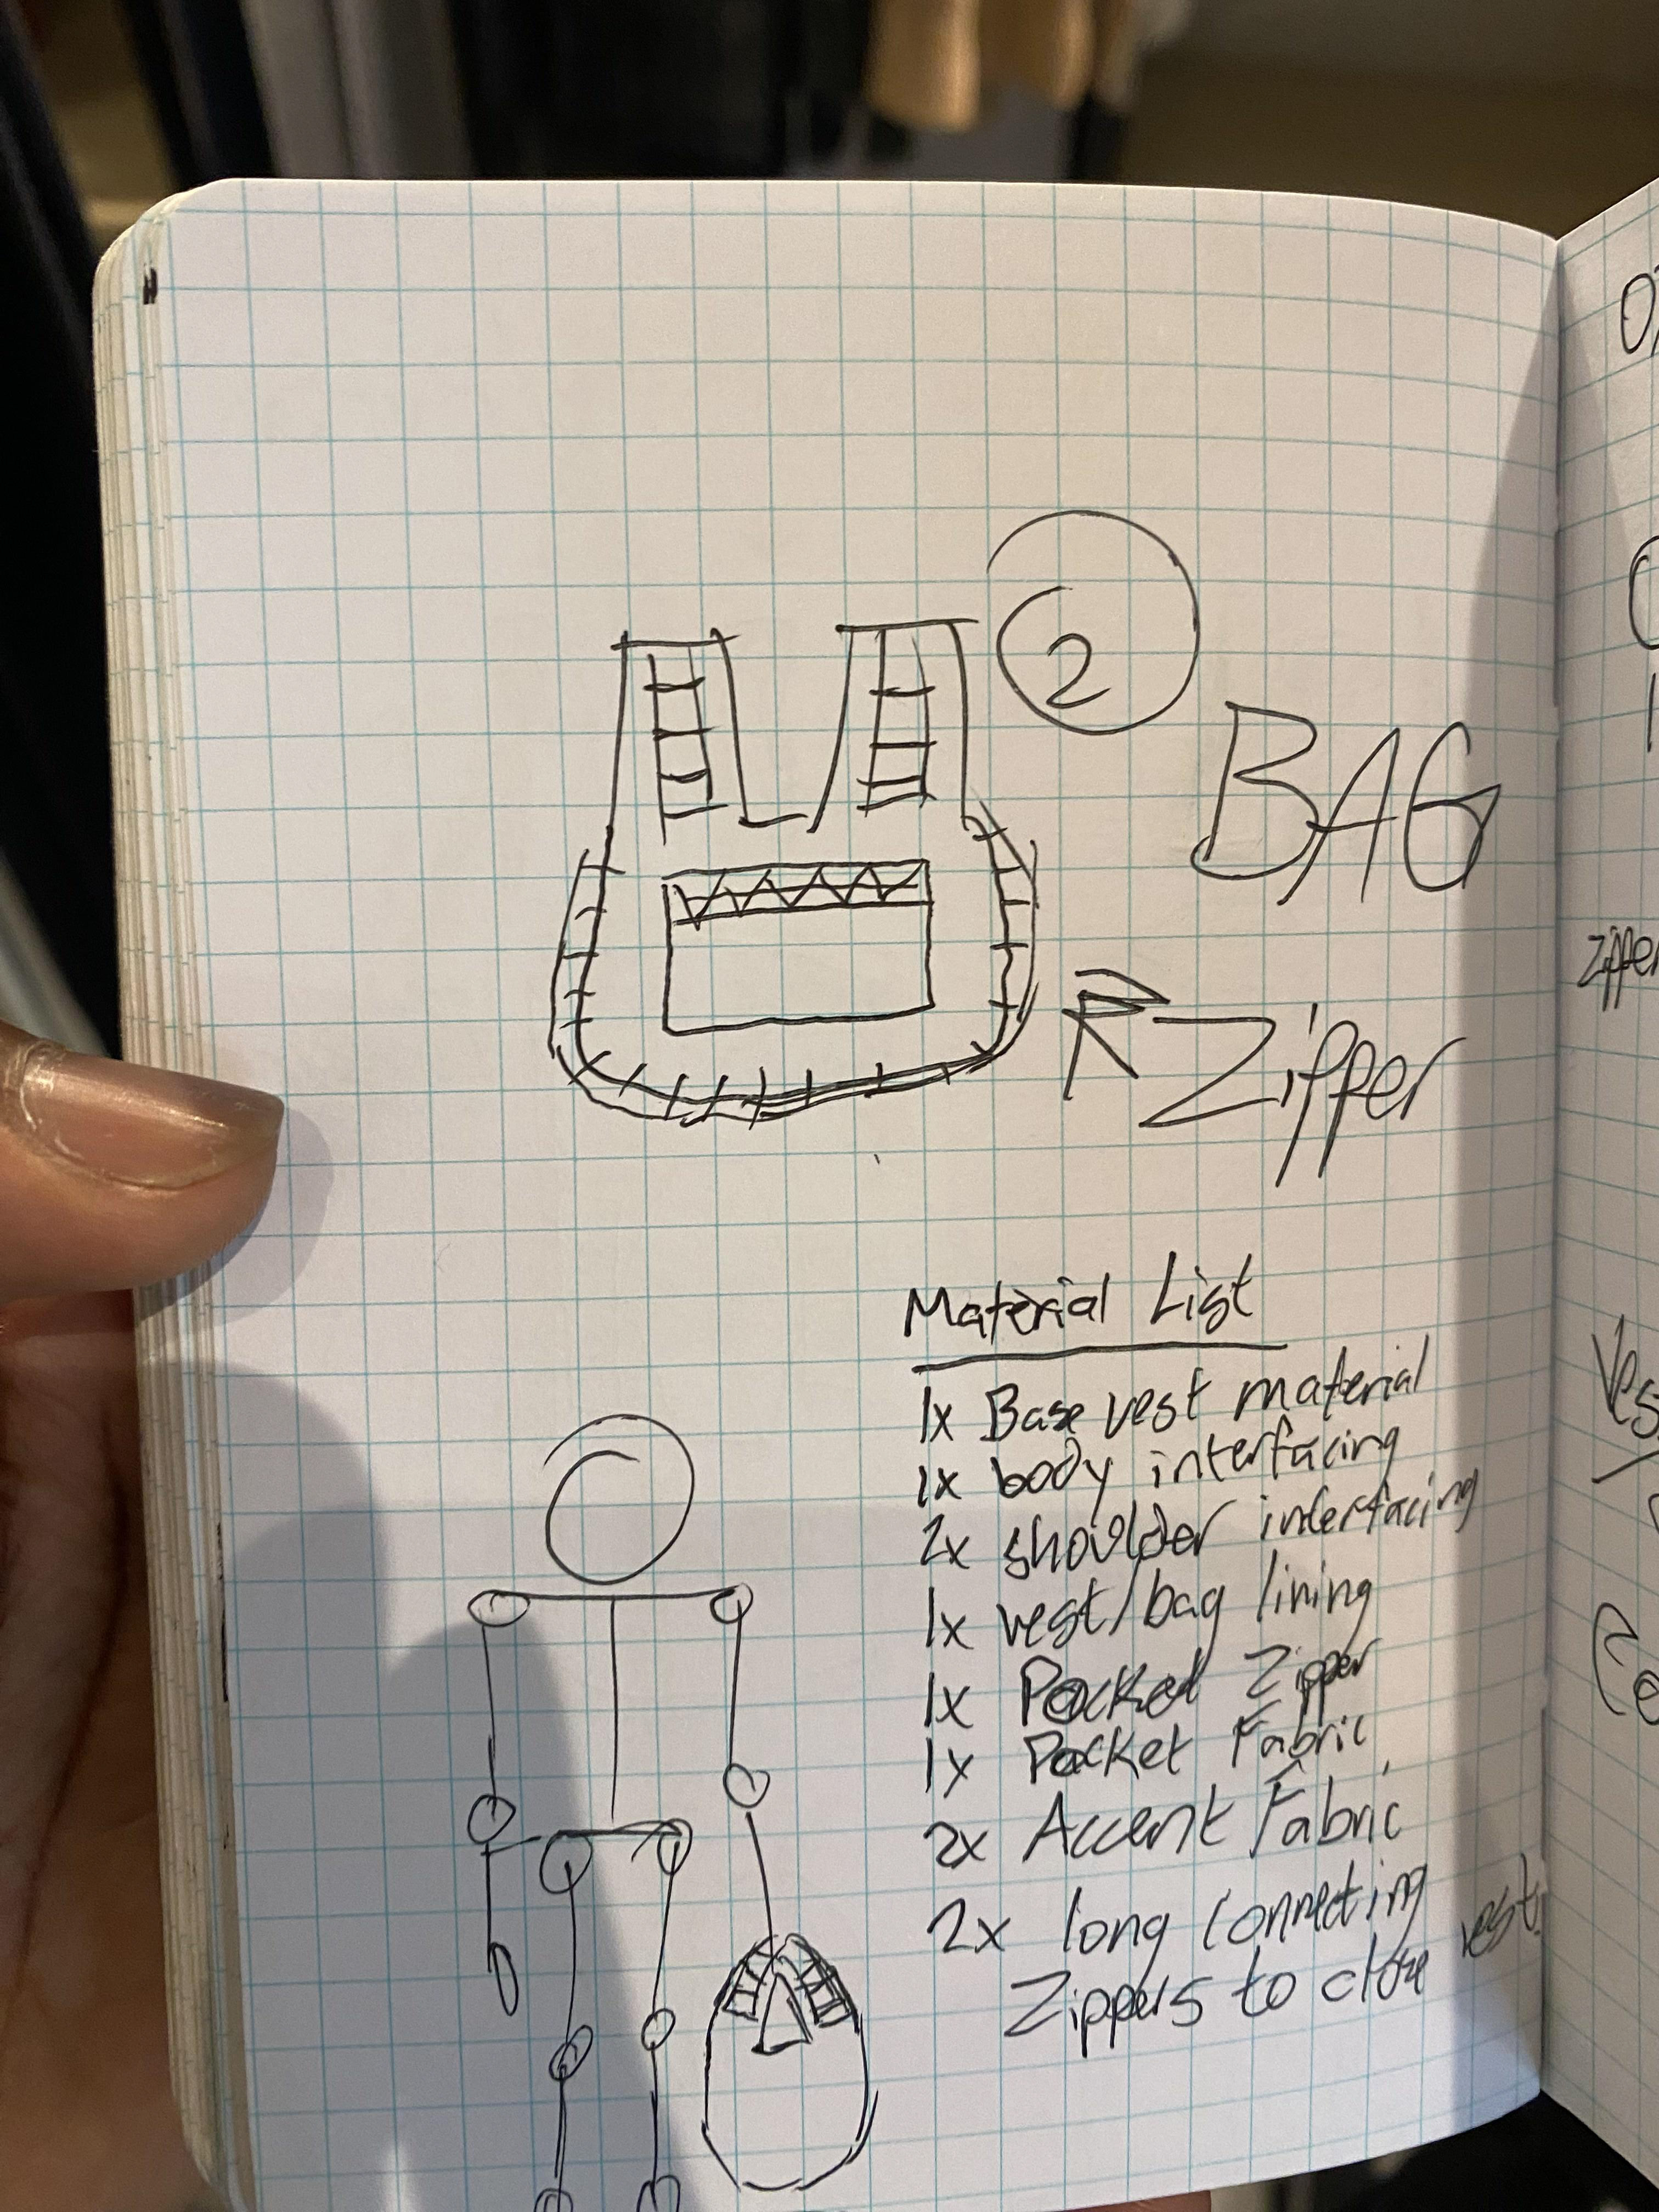 2
BAG
Zipper
Material List
1x Base vest material
1x body interfacing
2x shoulder interfacing
1x vest/bag lining
1x Pocket Zipper
1x Pocket Fabric
2x Accent Fabric
2x long connecting
Zippers to close vest
zipper